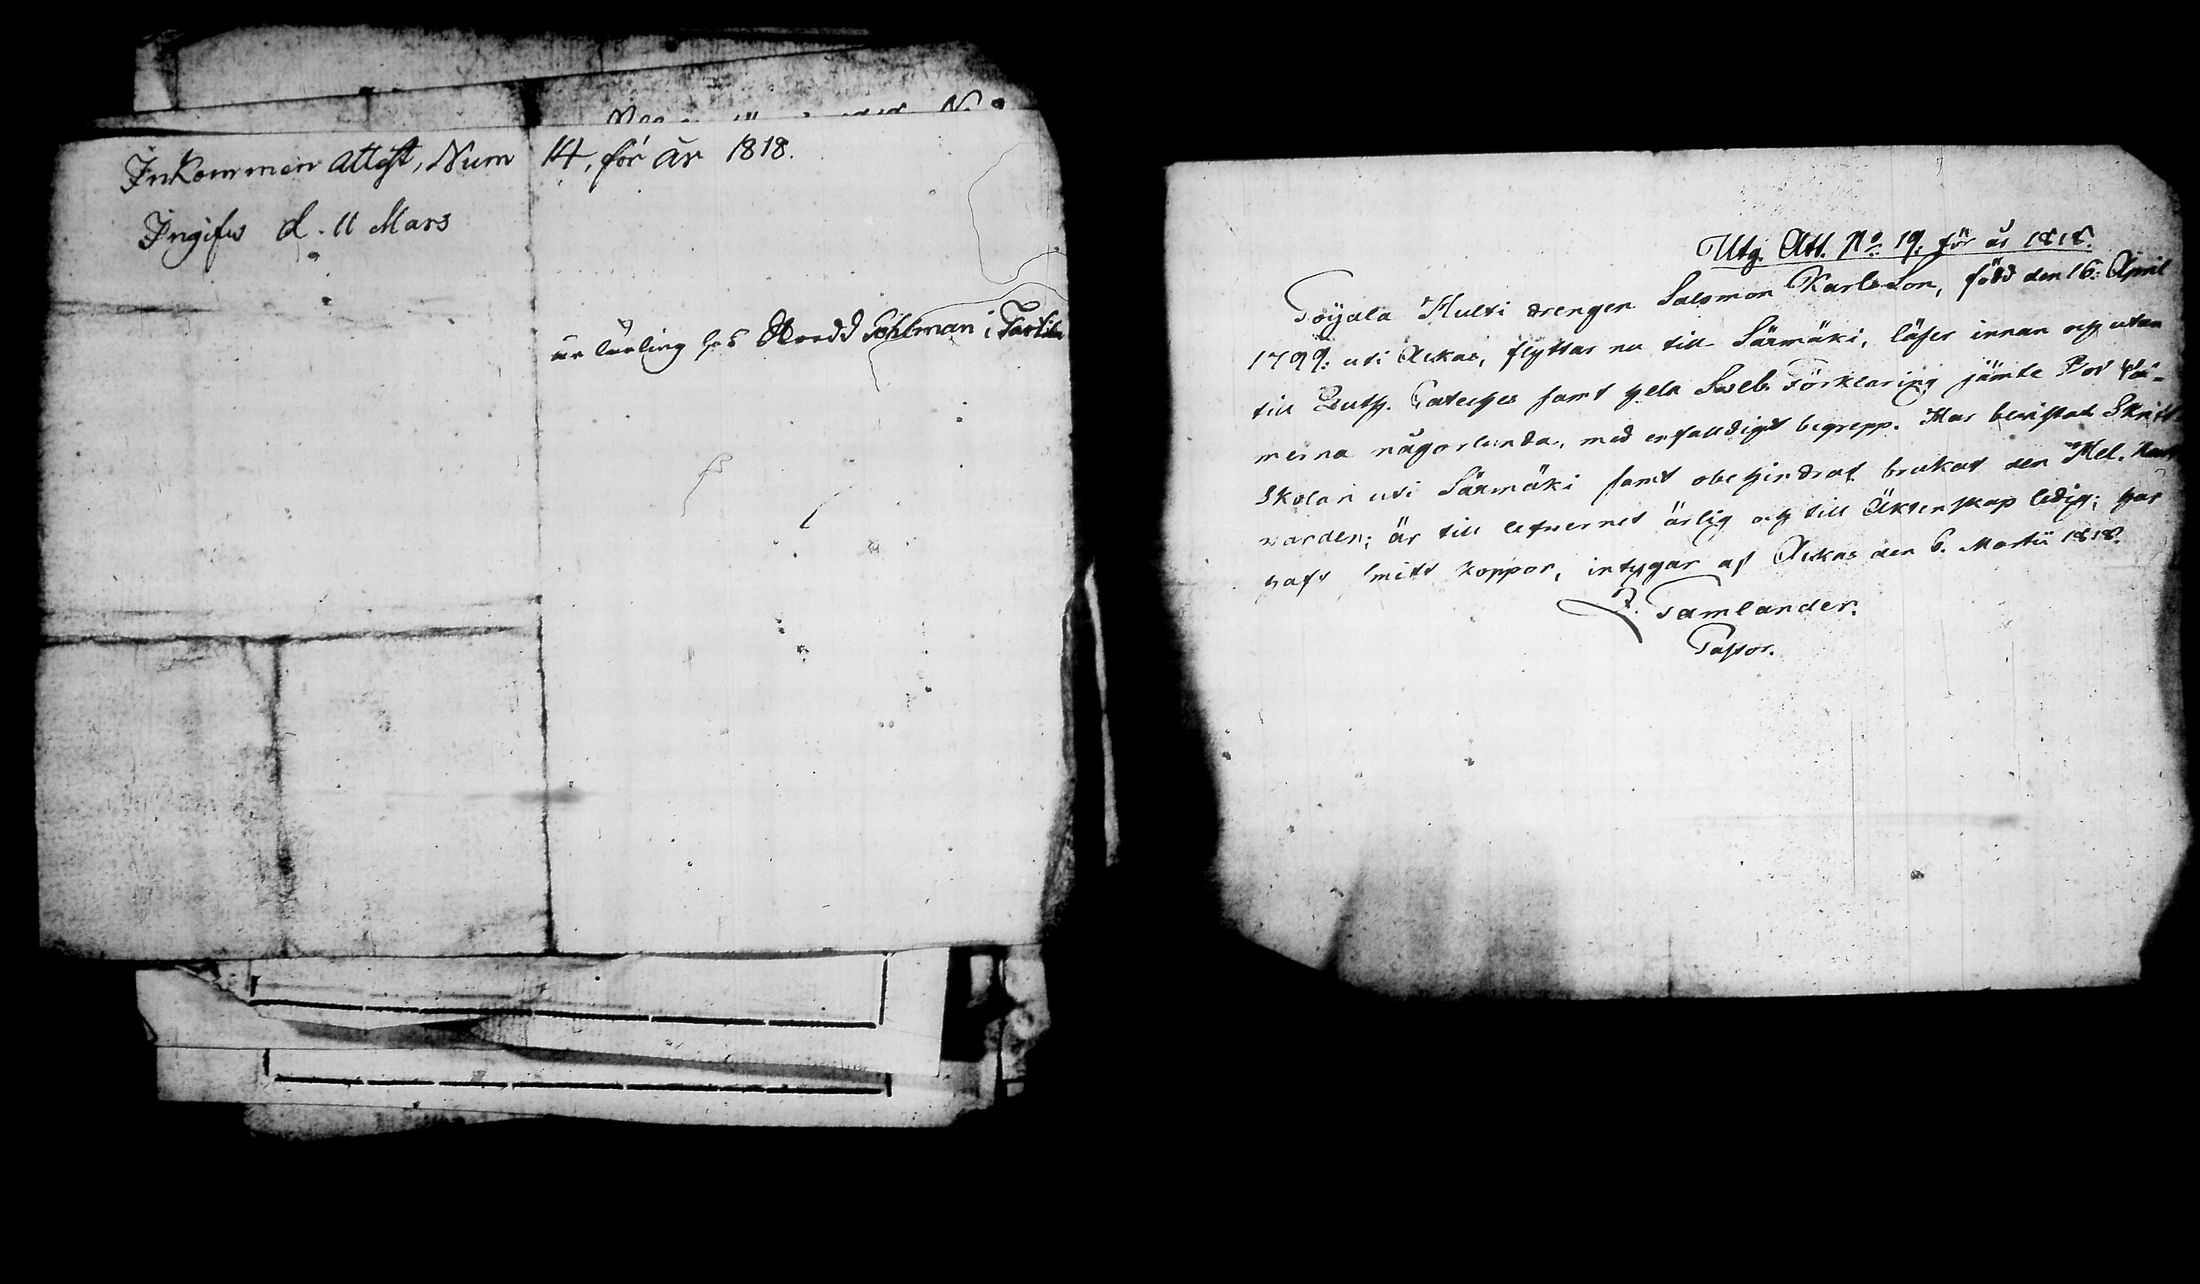 Inkommen attest, Num 14, för år 1818.
Ingifvs d. 11 Mars
är lärling hos Sohlman i
Utg. Att. No. 19. för år 1818.
Toijala Hulti drengen Salomon Karlsson, född den 16. April
1799: uti Ackas, flyttar nu till Säxmäki, läser innan och utan
till Luth. Cateches samt hela Sveb. Förklaring jämte
någorlunda, med enfalldigt begrepp. Har bevistat Skrift
Skolan uti Säxmäki samt obehindrat brukat den Hel.
varden; är till lefvernet ärlig och till Äktenskap ledig; har
haft koppor, intygar af Ackas den 6. Martii 1818.
Tamlander.
Pastor.